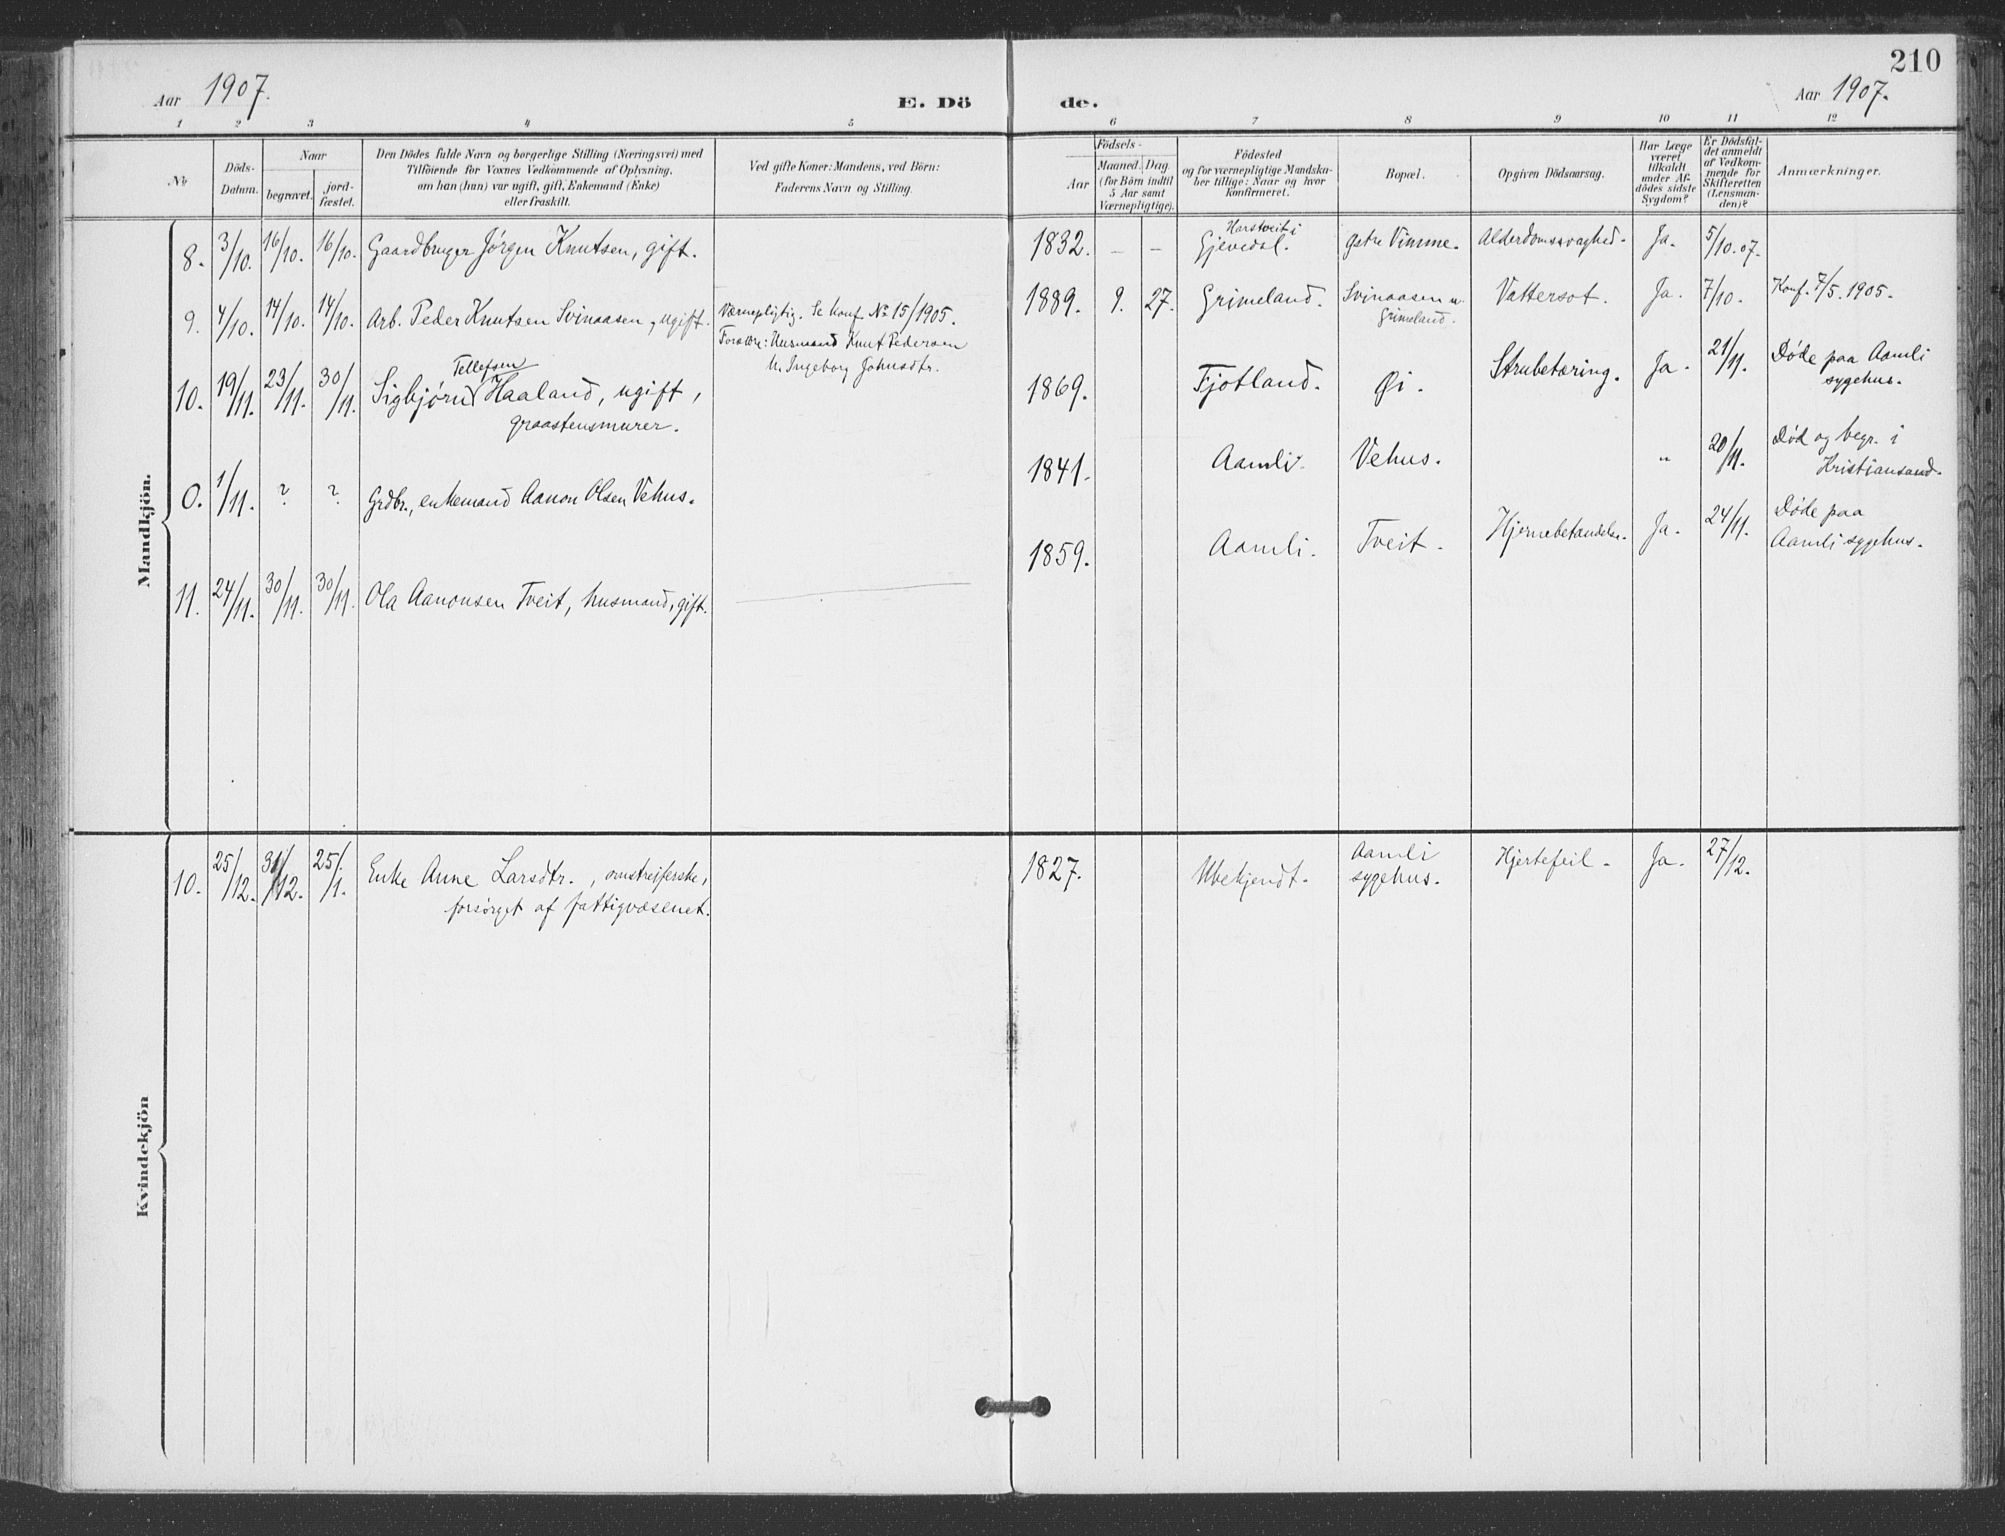 210
Aar 1907.
E. Dö de.
Aar 1907.
1 2 3 4 5 6 7 8 9 10 11 12
No
Döds-
Datum.
Naar
begravet.
jord-
fæstet.
Den Dödes fulde Navn og borgerlige Stilling (Næringsvei) med
Tilföiende for Voxnes Vedkommende af Oplysning,
om han (hun) var ugift, gift, Enkemand (Enke)
eller fraskilt.
Ved gifte Koner: Mandens, ved Börn:
Faderens Navn og Stilling.
Födsels-
Aar
Maaned.
Dag.
(for Börn indtil
5 Aar samt
Værnepligtige).
Födested
og for værnepligtige Mandska-
ber tillige: Naar og hvor
konfirmeret.
Bopæl.
Opgiven Dödsaarsag.
Har Læge
været
tilkaldt
under Af-
dödes sidste
Sygdom?
Er Dödsfal-
det anmeldt
af Vedkom-
mende for
Skifteretten
(Lensman-
den)?
Anmærkninger.
Mandkjön.
8. 3/10. 16/10. 16/10. Gaardbruger Jørgen Knutsen, gift. 1832. – – Harstveit i
Gjevedal. østre Vimme. Alderdomssvaghed. Ja. 5/10. 07.
9. 4/10. 14/10. 14/10. Arb. Peder Knutsen Svinaasen, ugift. Værnepligtig. Se Konf. No 15/1905.
Forældre: Husmand Knut Pedersen
u. Ingeborg Johnsdtr.
1889. 9. 27. Grimeland. Svinaasen u.
Grimeland. Vattersot. Ja. 7/10. Konf. 7/5. 1905.
10. 19/11. 23/11. 30/11. Sigbjørn Tellefsen Haaland, ugift,
graastensmurer.
1869. Fjotland. Øi. Strubetæring. Ja. 21/11. Døde paa Aamli
sygehus.
0. 1/11. ? ? Grdbr., enkemand Aanon Olsen Vehus. 1841. Aamli. Vehus. „ 20/11. Død og begr. i
Kristiansand.
11. 24/11. 30/11. 30/11. Ola Aanonsen Tveit, husmand, gift. 1859. Aamli. Tveit. Hjernebetændelse. Ja. 24/11. Døde paa
Aamli sygehus.
Kvindekjön
10. 25/12. 31/12. 25/1. Enke Anne Larsdtr., omstreiferske,
forsørget af fattigvæsenet.
1827. Ubekjendt. Aamli
sygehus. Hjertefeil. Ja. 27/12.